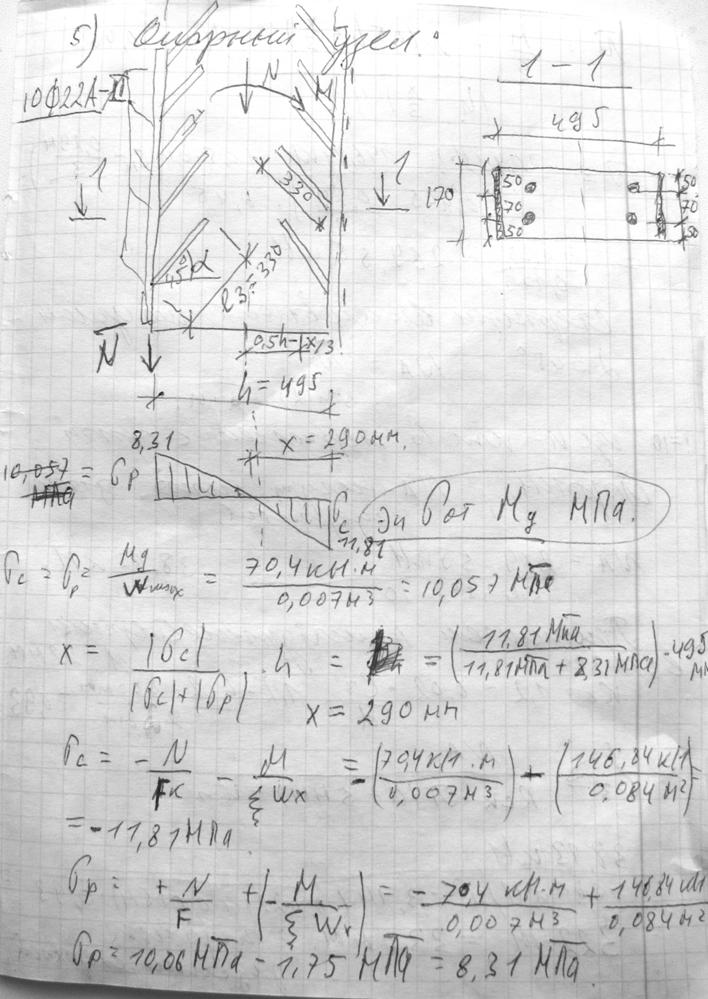 5) Опорный узел:
1 – 1
10ф22А-III
N
M
495
1
1
330
170
50
70
50
50
70
50
45°
α
lз=330
N
0,5h-x/3
h = 495
x = 290мм.
8,31
10,057 МПа = σp
σc
11,81
Эп σ от Mд МПа.
σc = σp = Mд / Wmax = 70,4 кН·м / 0,007 м³ = 10,057 МПа
x = |σc| / (|σc|+|σp|) · h = = (11,81 МПа / (11,81МПа + 8,31МПа)) · 495 мм
x = 290 мм
σc = - N/Fк - M/(ξWx) = -(70,4 кН·м / 0,007 м³) + (146,84 кН / 0,084 м²) =
= -11,81 МПа.
σp = + N/F + (- M/(ξWx)) = - 70,4 кН·м / 0,007 м³ + 146,84 кН / 0,084 м²
σp = 10,06 МПа - 1,75 МПа = 8,31 МПа.